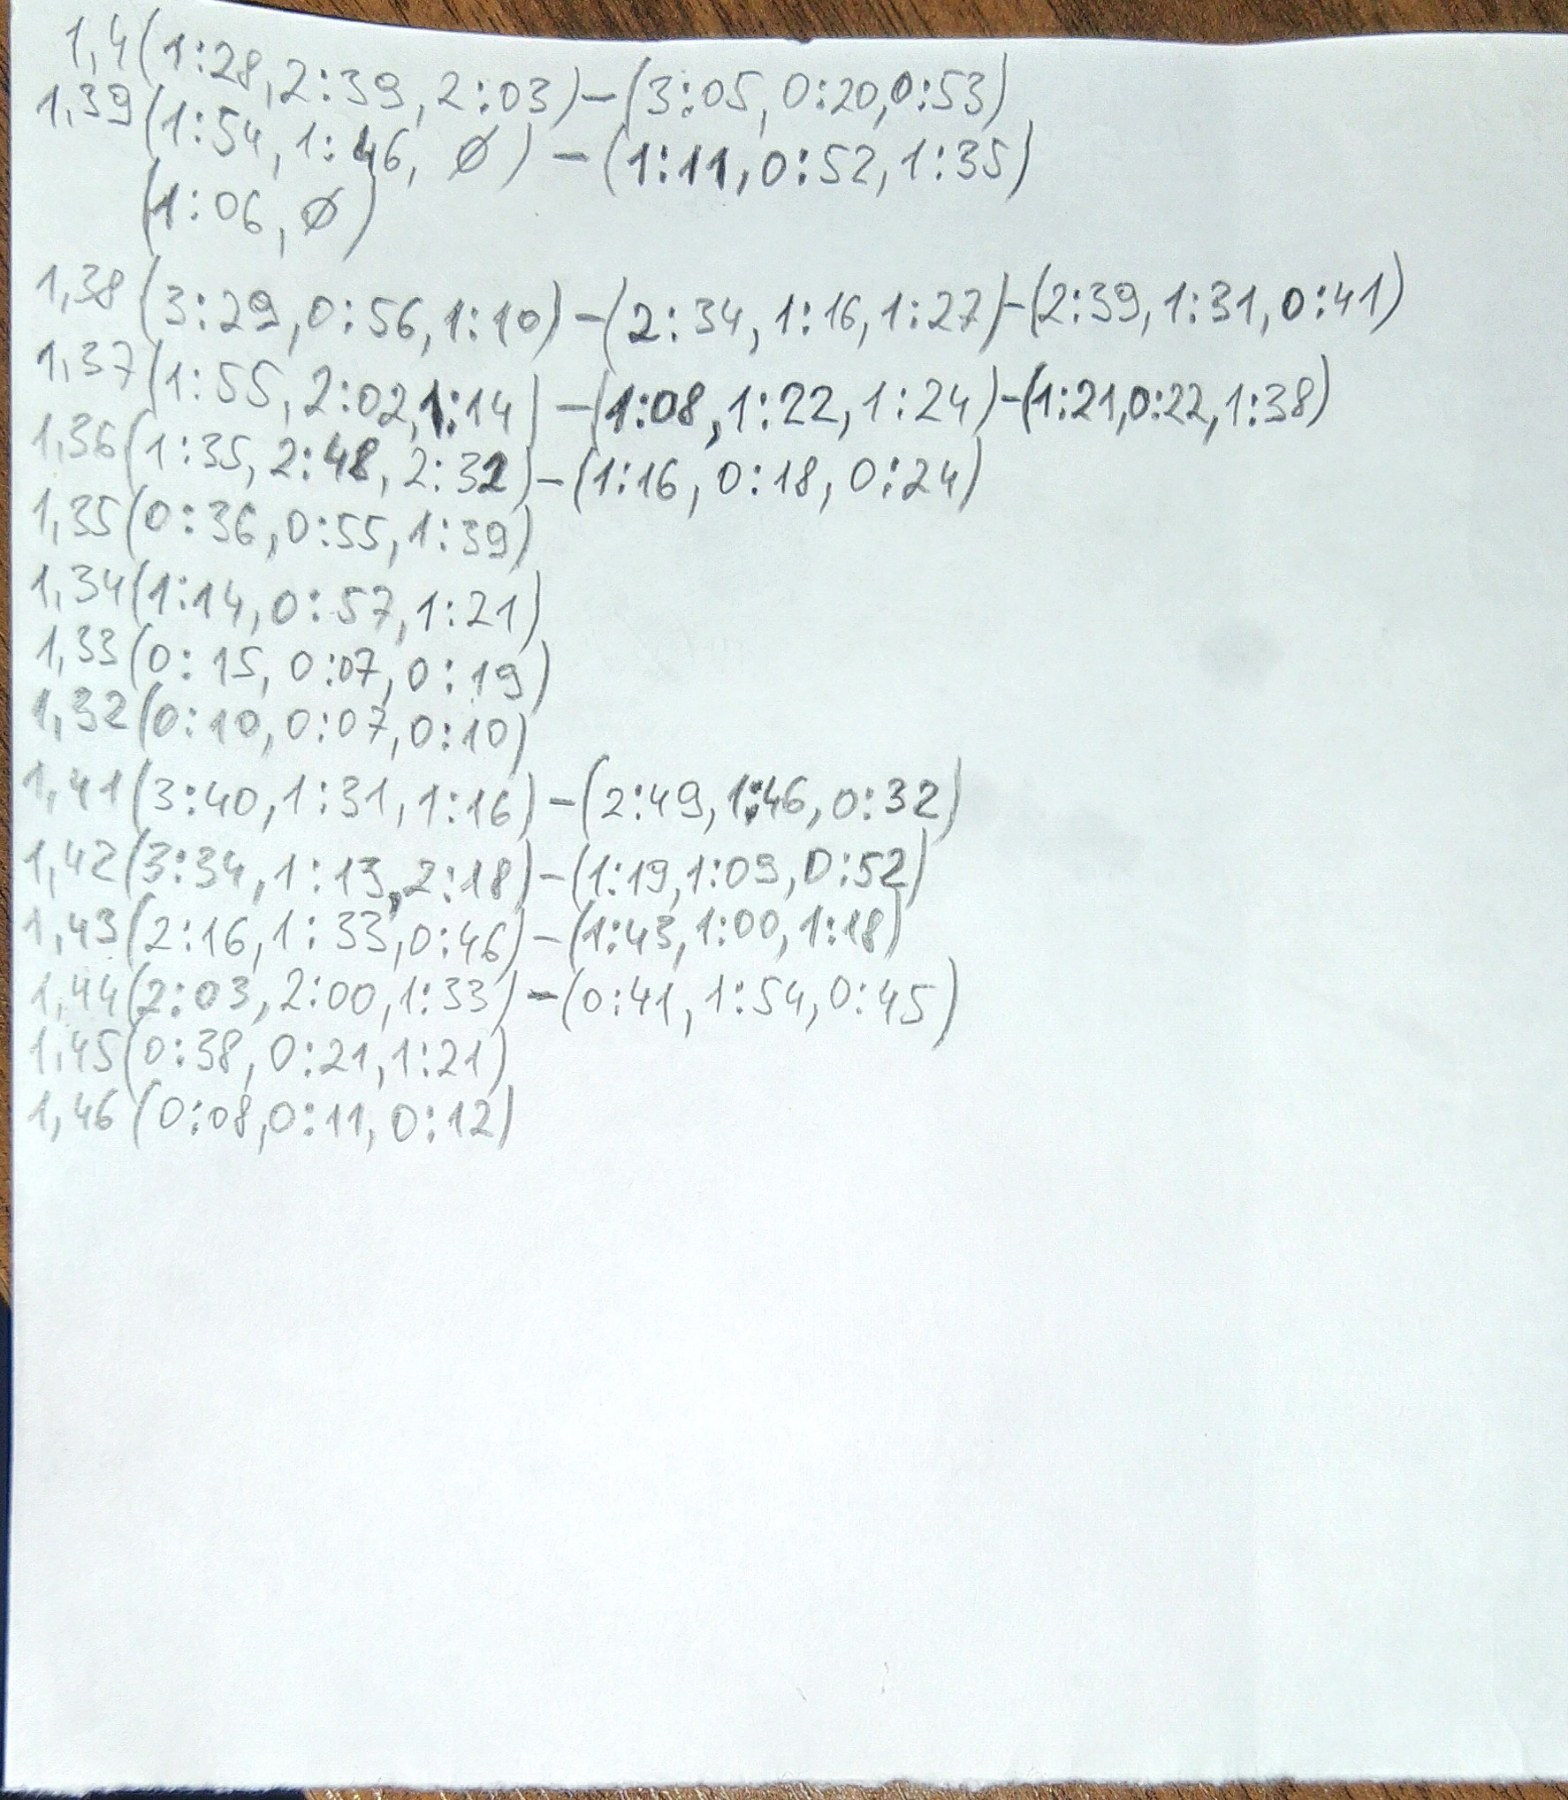 1,4(1:28,2:39,2:03)-(3:05,0:20,0:53)
1,39(1:54,1:46,Ø)-(1:11,0:52,1:35)
(1:06,Ø)
1,38(3:29,0:56,1:10)-(2:34,1:16,1:27)-(2:39,1:31,0:41)
1,37(1:55,2:02,1:14)-(1:08,1:22,1:24)-(1:21,0:22,1:38)
1,36(1:35,2:48,2:32)-(1:16,0:18,0:24)
1,35(0:36,0:55,1:39)
1,34(1:14,0:57,1:21)
1,33(0:15,0:07,0:19)
1,32(0:10,0:07,0:10)
1,41(3:40,1:31,1:16)-(2:49,1:46,0:32)
1,42(3:34,1:13,2:18)-(1:19,1:09,0:52)
1,43(2:16,1:33,0:46)-(1:43,1:00,1:18)
1,44(2:03,2:00,1:33)-(0:41,1:54,0:45)
1,45(0:38,0:21,1:21)
1,46(0:08,0:11,0:12)